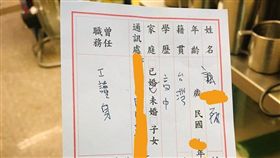 姓名
年齡 歲 民國 年
籍貫 台灣
學歷 高中
家庭 已婚 未婚 子女
通訊處
曾任職務 工讀身